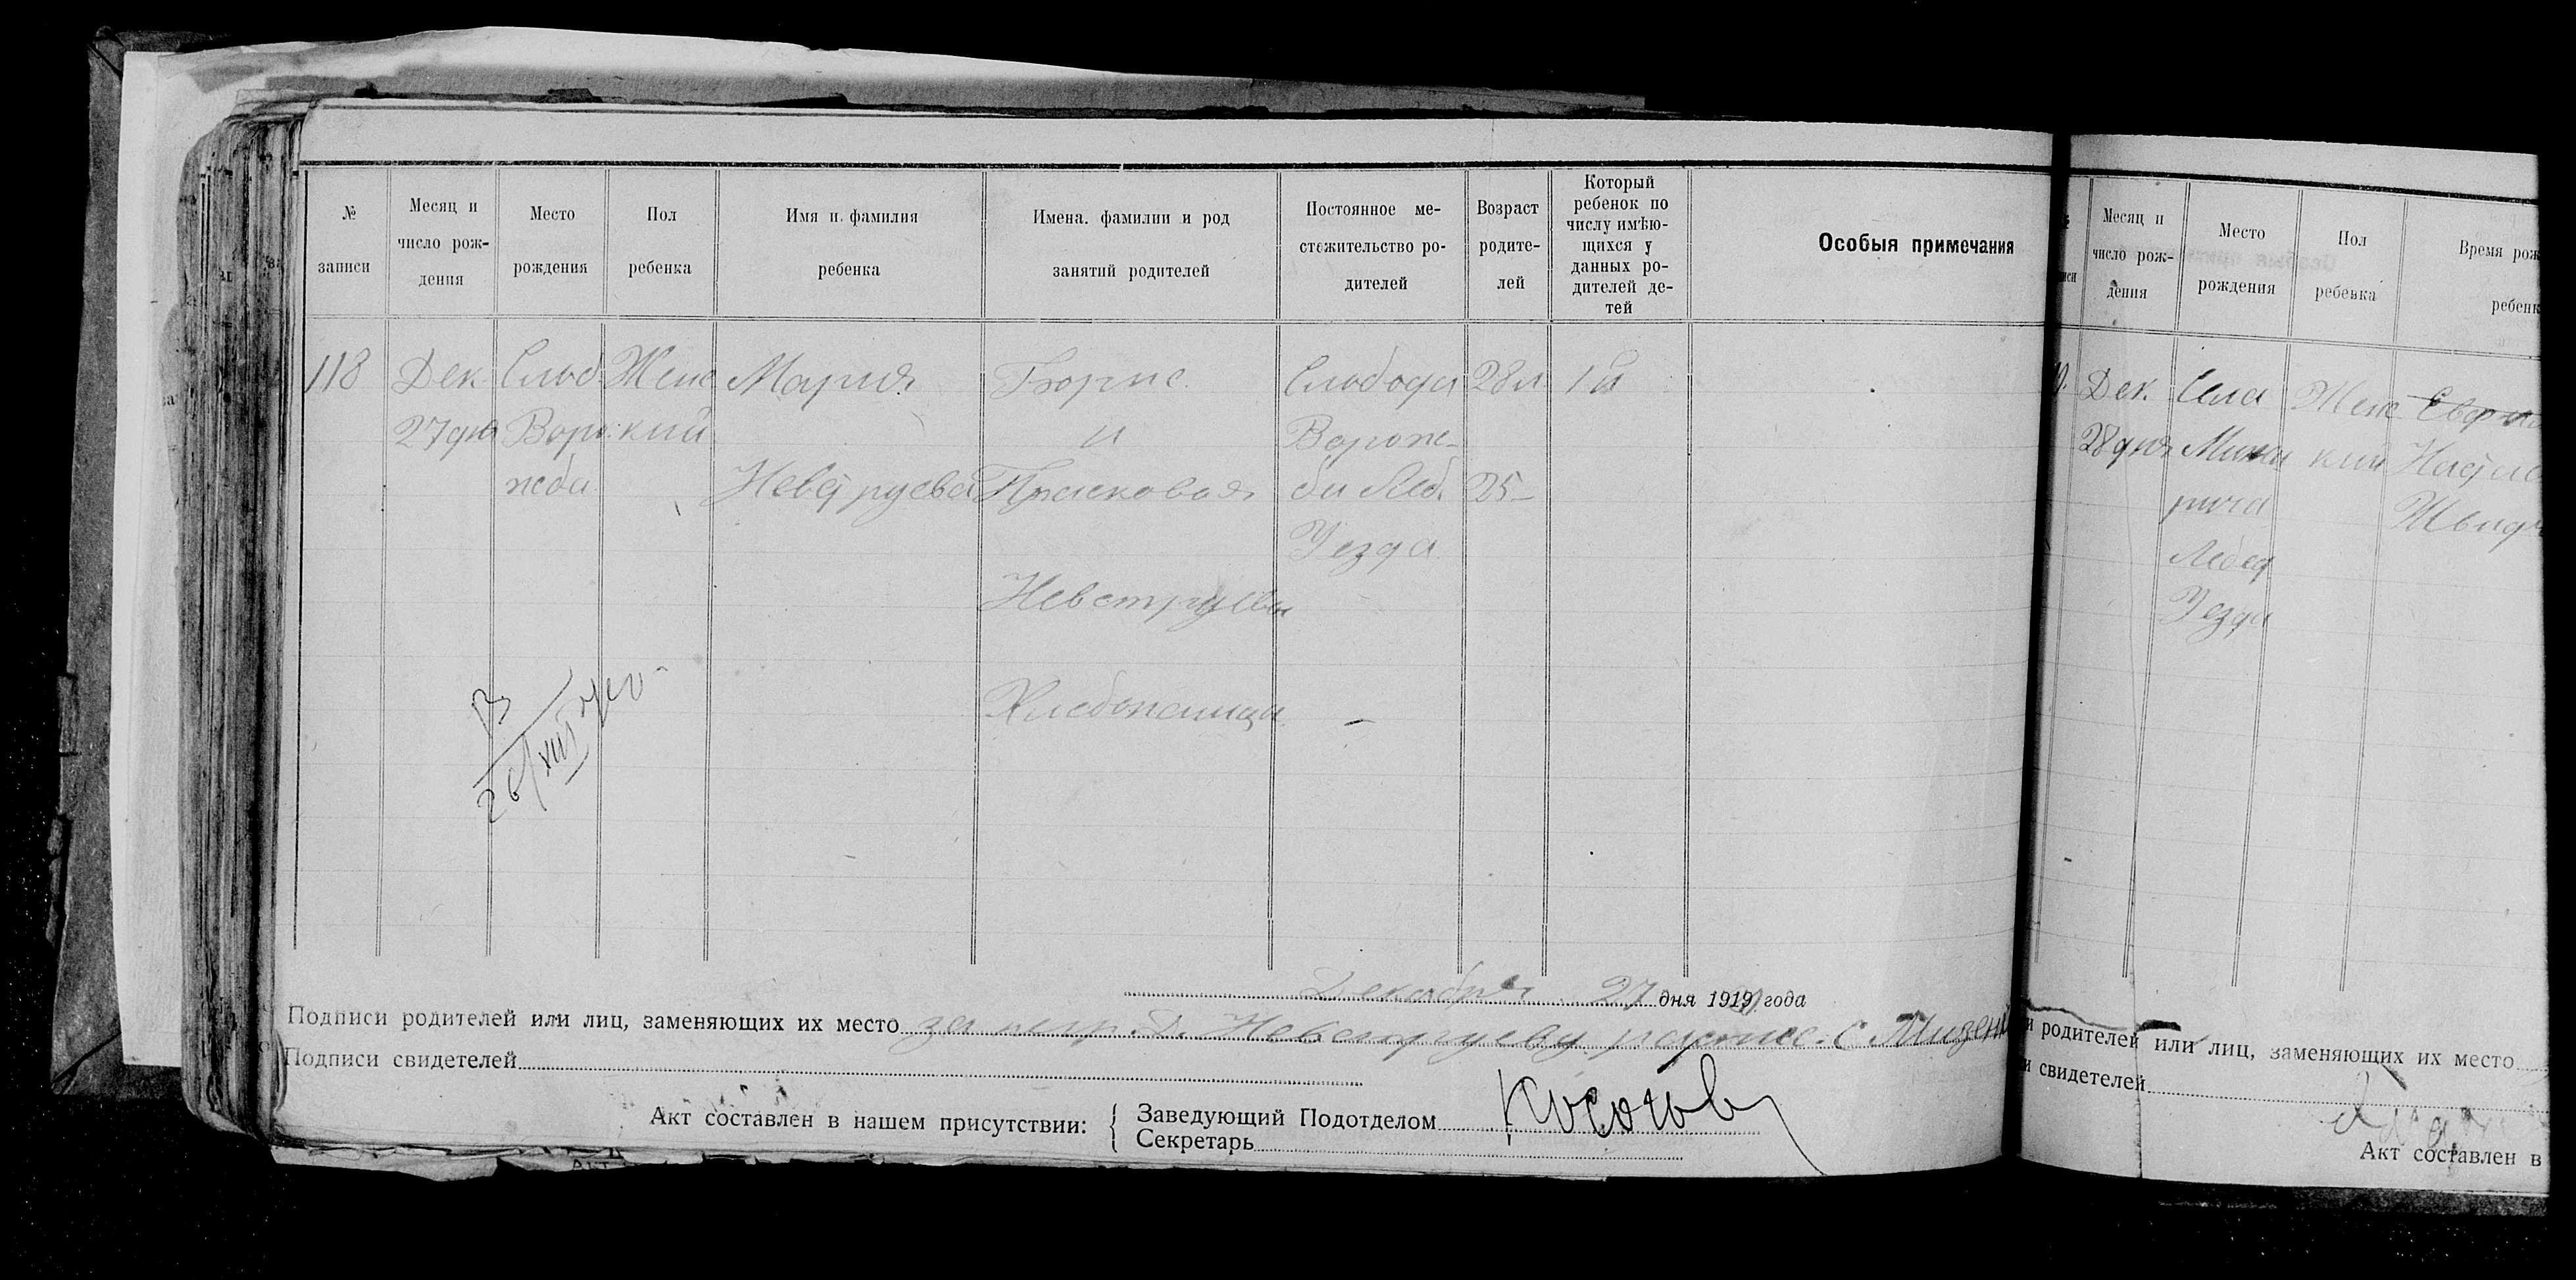 № записи
Месяц и число рож- дения
Место рождения
Пол ребенка
Имя и фамилия ребенка
Имена. фамилии и род занятий родителей
Постоянное ме- стожительство ро- дителей
Возраст родите- лей
Который ребенок по числу имѣю- щихся у данных ро- дителей де- тей
Особыя примечания
118
Дек. 27 дня
Слоб. Воро- жба
Женс кий
Мария
Невструева
Борис
и
Прасковая
Невструевы
Хлебопашцы
Слобода
Вороже-
бы Леб.
Уезда
28 л
25 –
1й
26/XII
Декабря 27 дня 1919 года
Подписи родителей или лиц, заменяющих их место за негр. Невструеву роспис. С Мизен
Подписи свидетелей
Акт составлен в нашем присутствии:
Заведующий Подотделом
Секретарь
Месяц и число рож- дения
Место рождения
Пол ребенка
Время рож
ребенк
Дек. 28 дня
Села
Лебед
Уезда
Женс кий
и родителей или лиц, заменяющих их место
и свидетелей
Акт составлен в